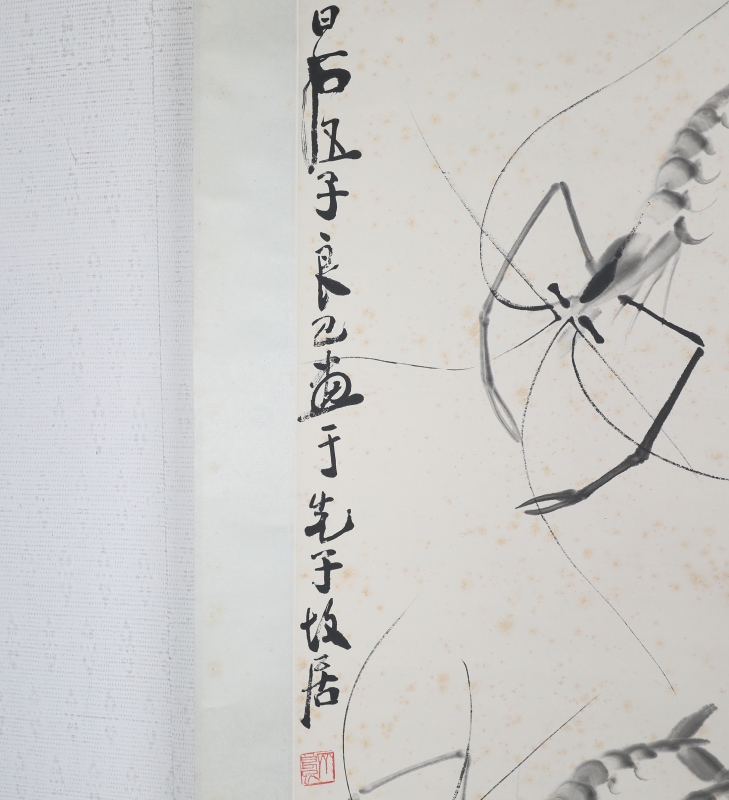 白石五子良已畫于先子故居